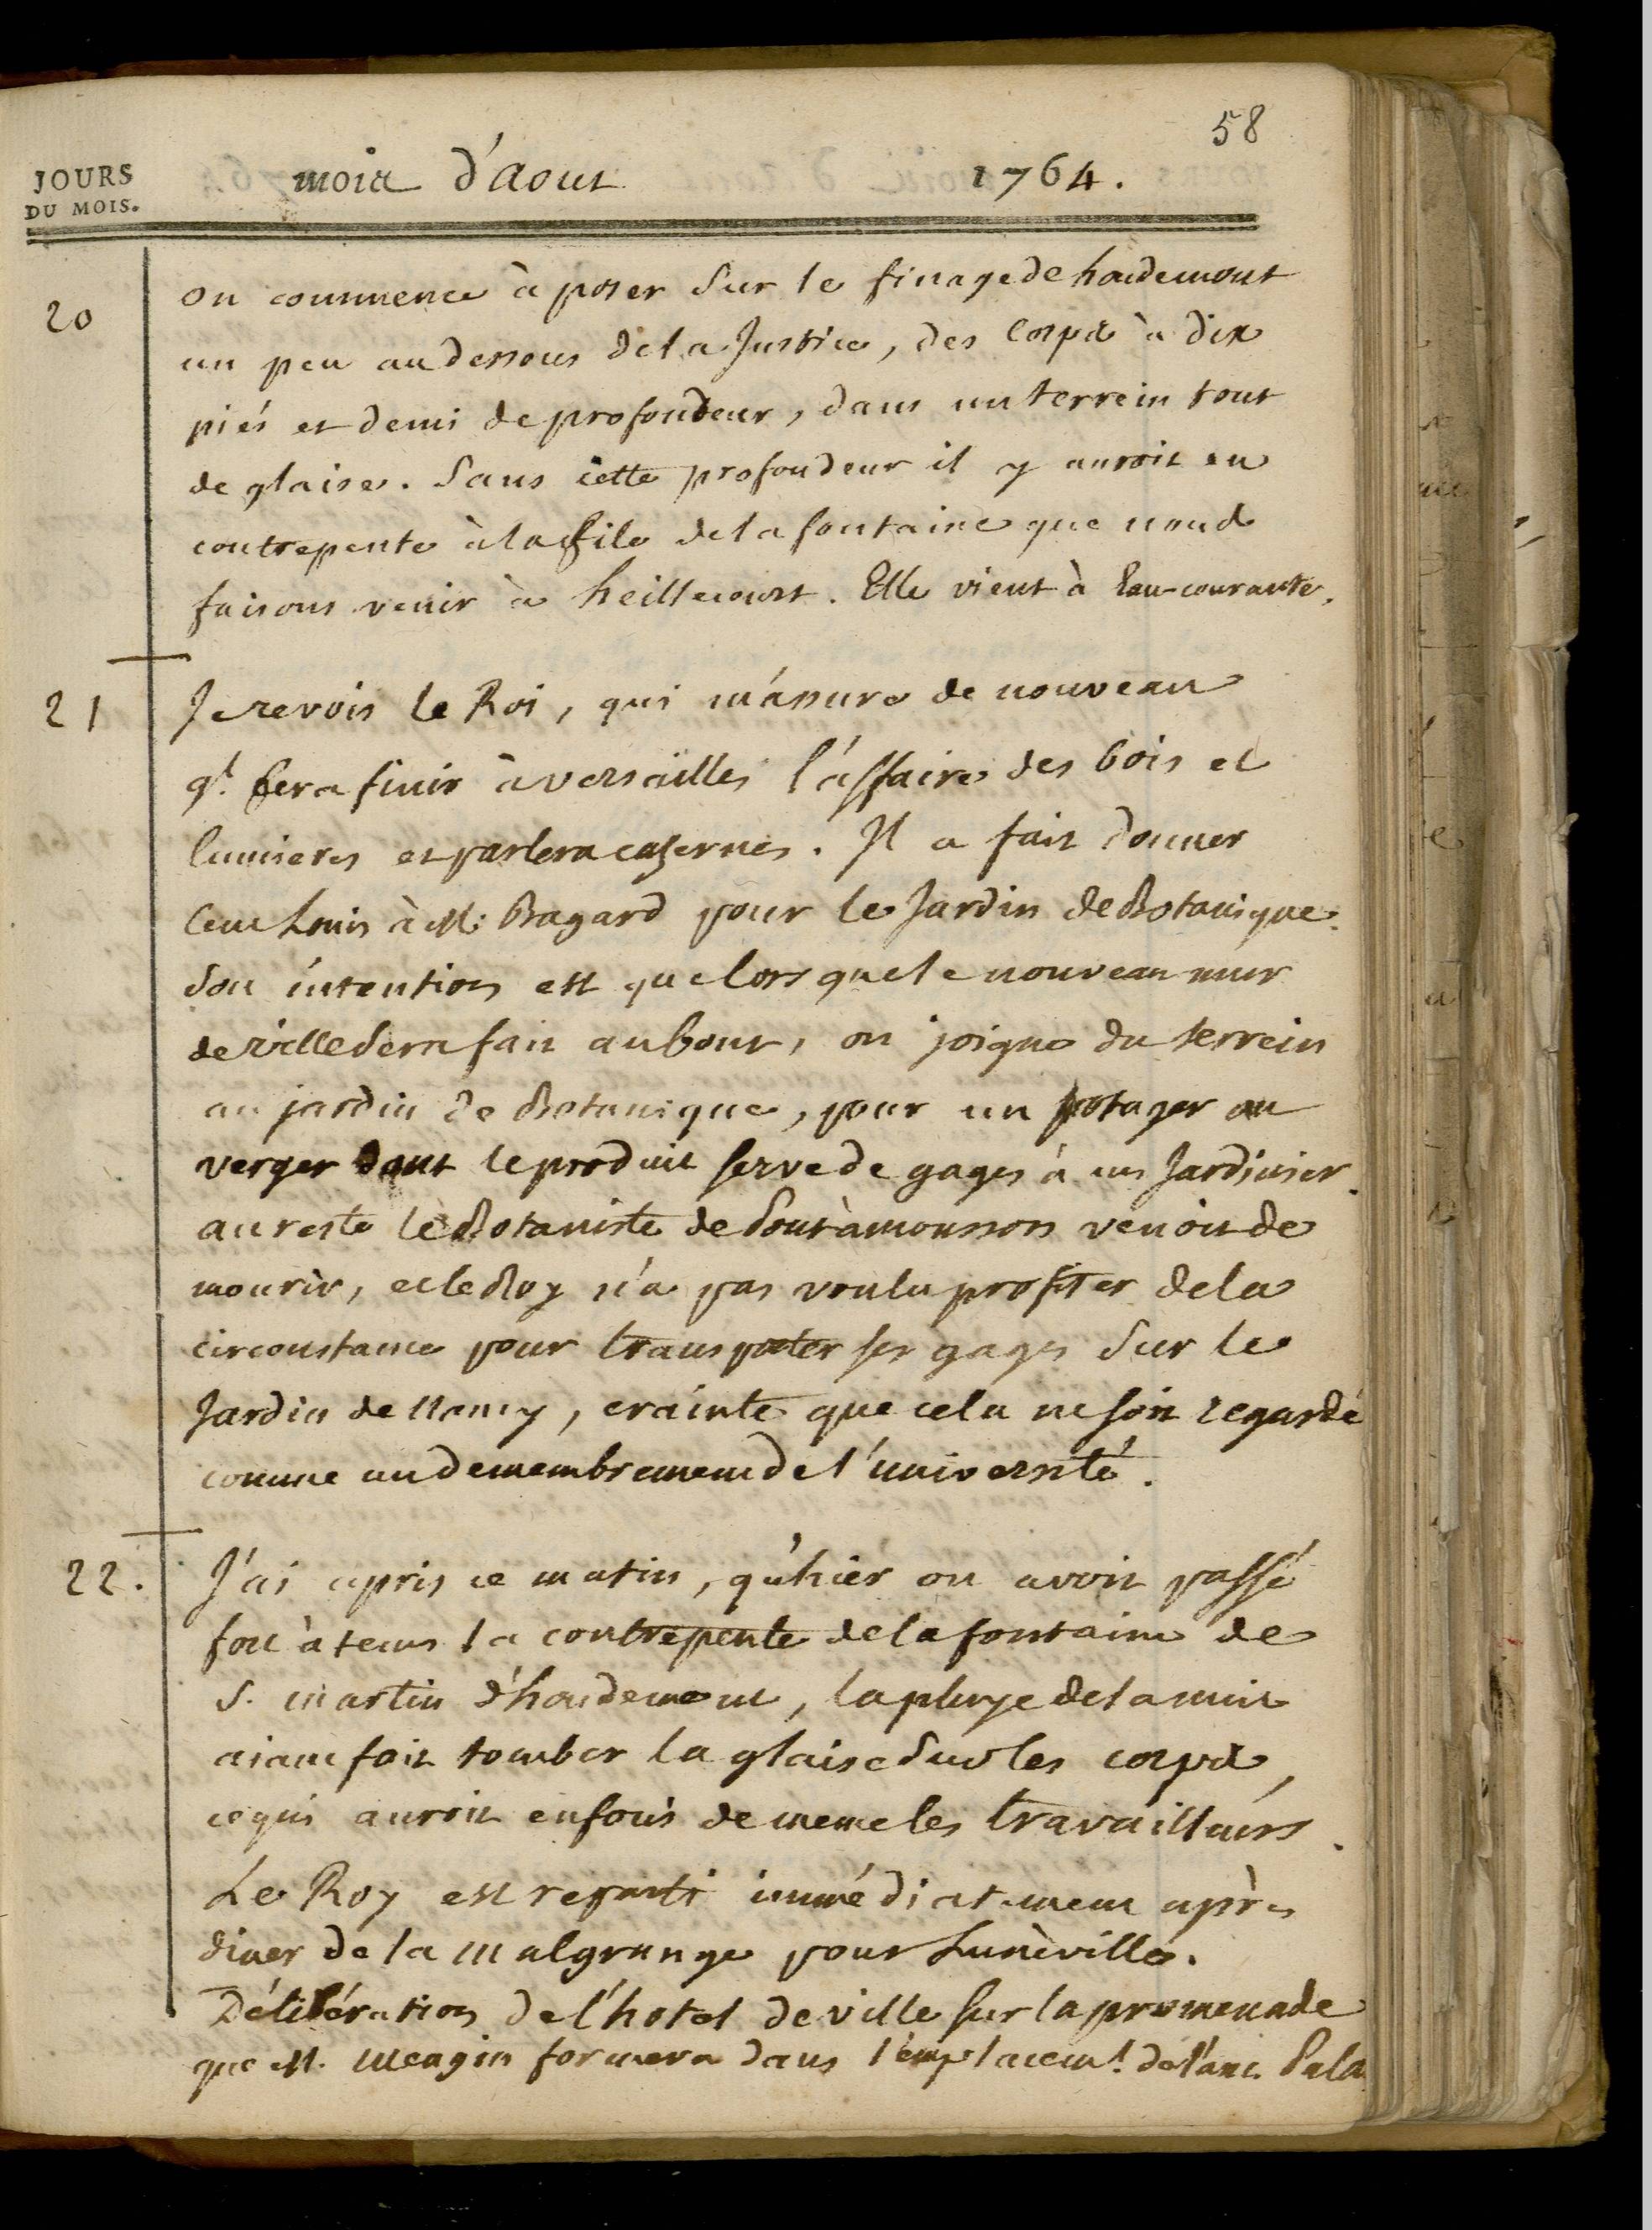 58
JOURS
DU MOIS.
mois d'aout 1764.
20
on commence à poser sur le finage de houdemont
un peu au dessous de la Justice, des corps à dix
piés et demi de profondeur, dans un terrein tout
de glaise. Sans cette profondeur il y auroit eu
contrepente à la file de la fontaine que nous
faisons venir à heillecourt. Elle vient à l'eau-courante.
21
Je revois le Roi, qui m'assure de nouveau
q'l fera finir à versailles l'affaire des bois et
lumieres et parlera cazernes. Il a fait donner
cent Louis à M. Bagard pour le Jardin de Botanique.
Son intention est que lors que le nouveau mur
de ville sera fait au bout, on joigne du terrein
au jardin de Botanique, pour un potager ou
verger dont le produit serve de gages à un Jardinier.
au reste le Botaniste de Pontàmousson venoit de
mourir, et le Roy n'a pas voulu profiter de la
circonstance pour transporter ses gages sur le
Jardin de Nancy, crainte que cela ne soit regardé
comme un demembrement de l'université.
22.
J'ai apris ce matin, qu'hier on avoit passé
fort à tems la contrepente de la fontaine de
S. martin d'houdemont, la pluye de la nuit
aiant fait tomber la glaise sur les corps,
ce qui auroit enfoui de meme les travailleurs.
Le Roy est reparti immédiatement après
diner de la malgrange pour Lunéville.
Délibération de l'hotel de ville sur la promenade
que M. Meagin formera dans l'emplacem.t de l'anc. Pala